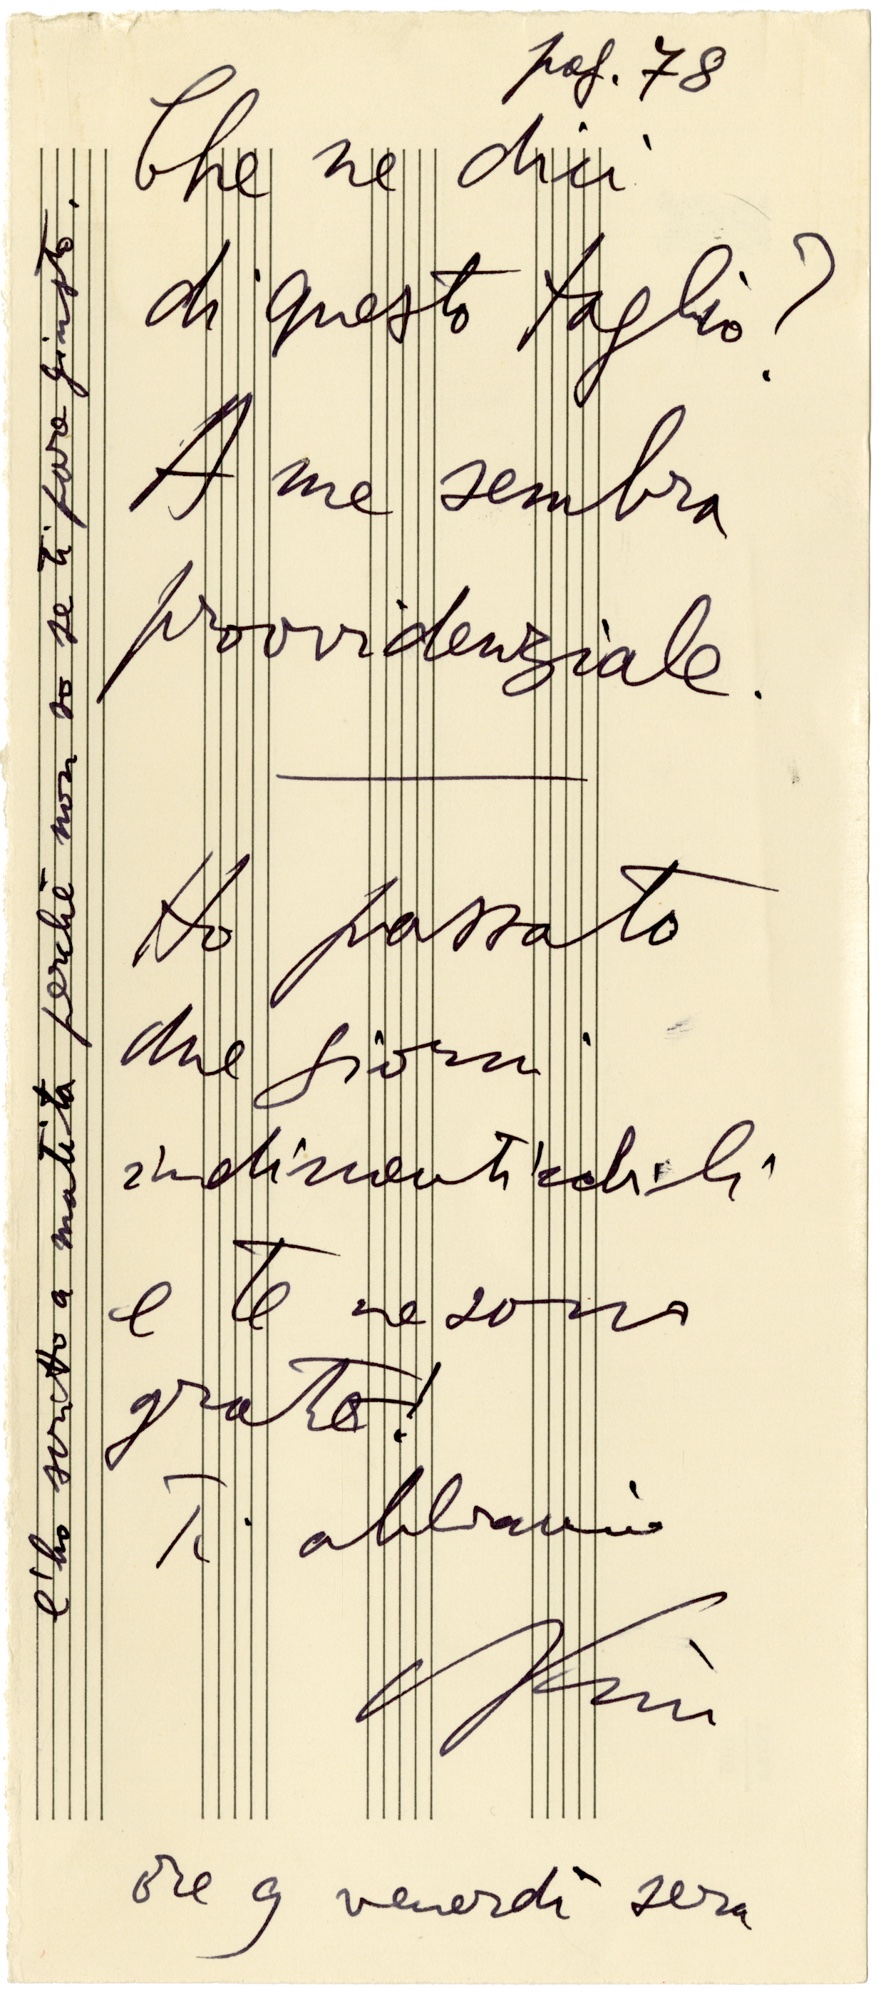 pag. 78
Che ne dici
di questo taglio?
A me sembra
provvidenziale.
Ho passato
due giorni
indimenticabili
e te ne sono
grato!
Ti abbraccio
ore 9 venerdì sera
l'ho scritto a matita perchè non so se ti pare giusto.